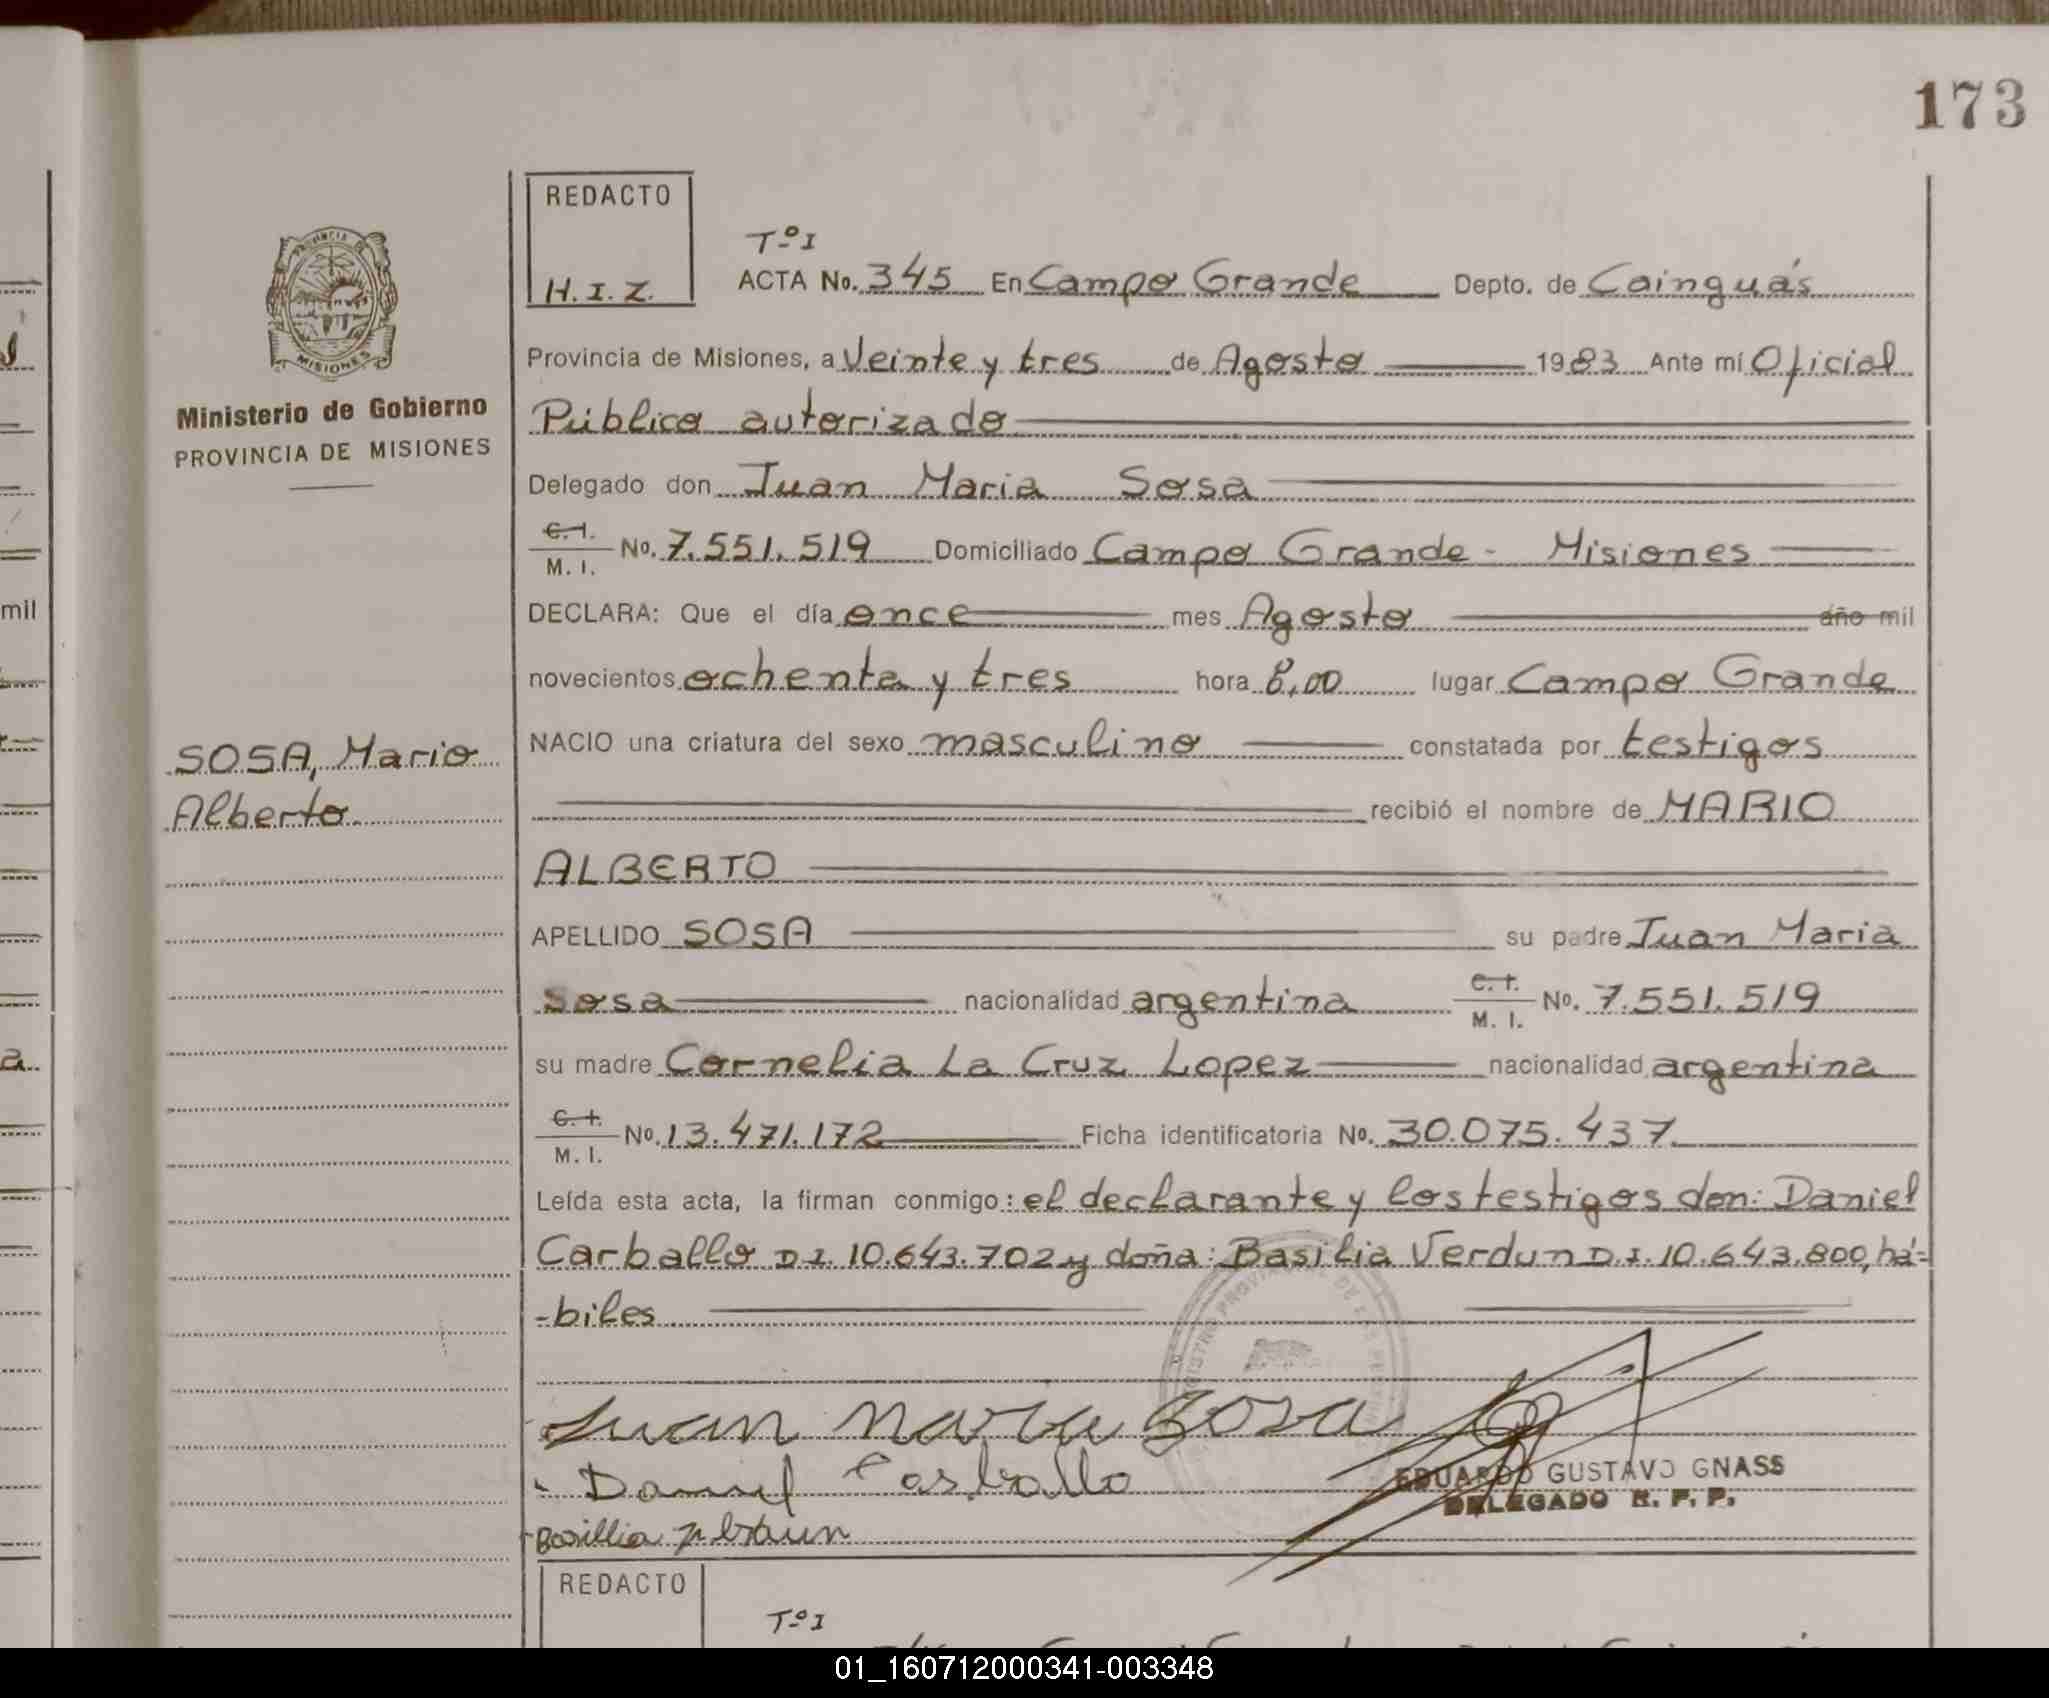 173
REDACTO
H.I.Z.
Tº I
ACTA No. 345 En Campo Grande Depto. de Cainguás
Provincia de Misiones, a Veinte y tres de Agosto 1983 Ante mí Oficial
Público autorizado
Delegado don Juan Maria Sosa
C.I.
M. I. No. 7.551.519 Domiciliado Campo Grande - Misiones
DECLARA: Que el día once mes Agosto año mil
novecientos ochenta y tres hora 8,00 lugar Campo Grande
NACIO una criatura del sexo masculino constatada por testigos
recibió el nombre de MARIO
ALBERTO
APELLIDO SOSA su padre Juan Maria
Sosa nacionalidad argentina C.I. M. I. No. 7.551.519
su madre Cornelia La Cruz Lopez nacionalidad argentina
C.I.
M. I. No. 13.471.172 Ficha identificatoria No. 30.075.437
Leída esta acta, la firman conmigo: el declarante y los testigos don: Daniel
Carballo D.I. 10.643.702 y doña: Basilia Verdun D.I. 10.643.800, há-
-biles
Juan Maria Sosa
Daniel Carballo
EDUARDO GUSTAVO GNASS
DELEGADO R. P. P.
REDACTO
Tº I
PROVINCIA DE
MISIONES
Ministerio de Gobierno
PROVINCIA DE MISIONES
SOSA, Mario
Alberto
mil
a
01_160712000341-003348